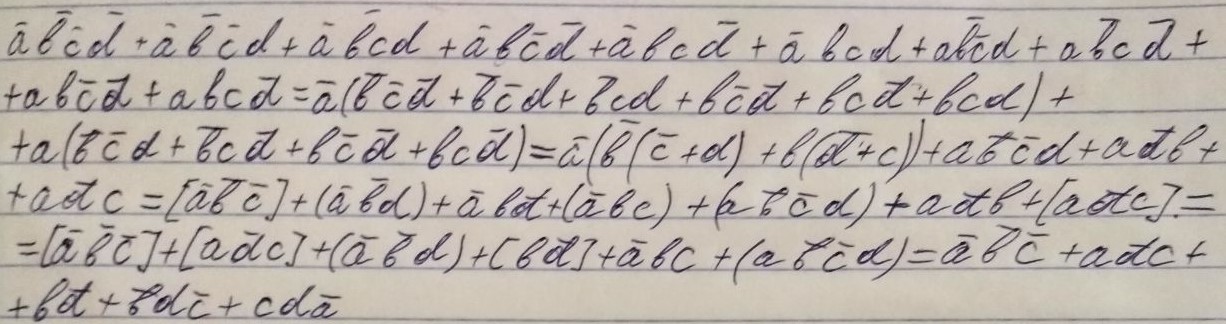 āb̄c̄d̄ + āb̄c̄d + āb̄cd + ābc̄d̄ + ābcd̄ + ābcd + ab̄c̄d + ab̄cd̄ +
+abc̄d̄ + abcd̄ = ā(b̄c̄d̄ + b̄c̄d + b̄cd + bc̄d̄ + bcd̄ + bcd) +
+a(b̄c̄d + b̄cd̄ + bc̄d̄ + bcd̄) = ā(b̄(c̄+d) + b(d̄+c)) + ab̄c̄d + ad̄b +
+ad̄c = [āb̄c̄] + (āb̄d) + ābd̄ + (ābc) + (ab̄c̄d) + ad̄b + [ad̄c] =
= [āb̄c̄] + [ad̄c] + (āb̄d) + [bd̄] + ābc + (ab̄c̄d) = āb̄c̄ + ad̄c +
+bd̄ + b̄dc̄ + cdā